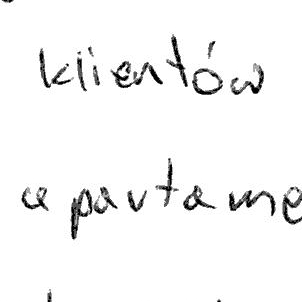 klientów
apartame